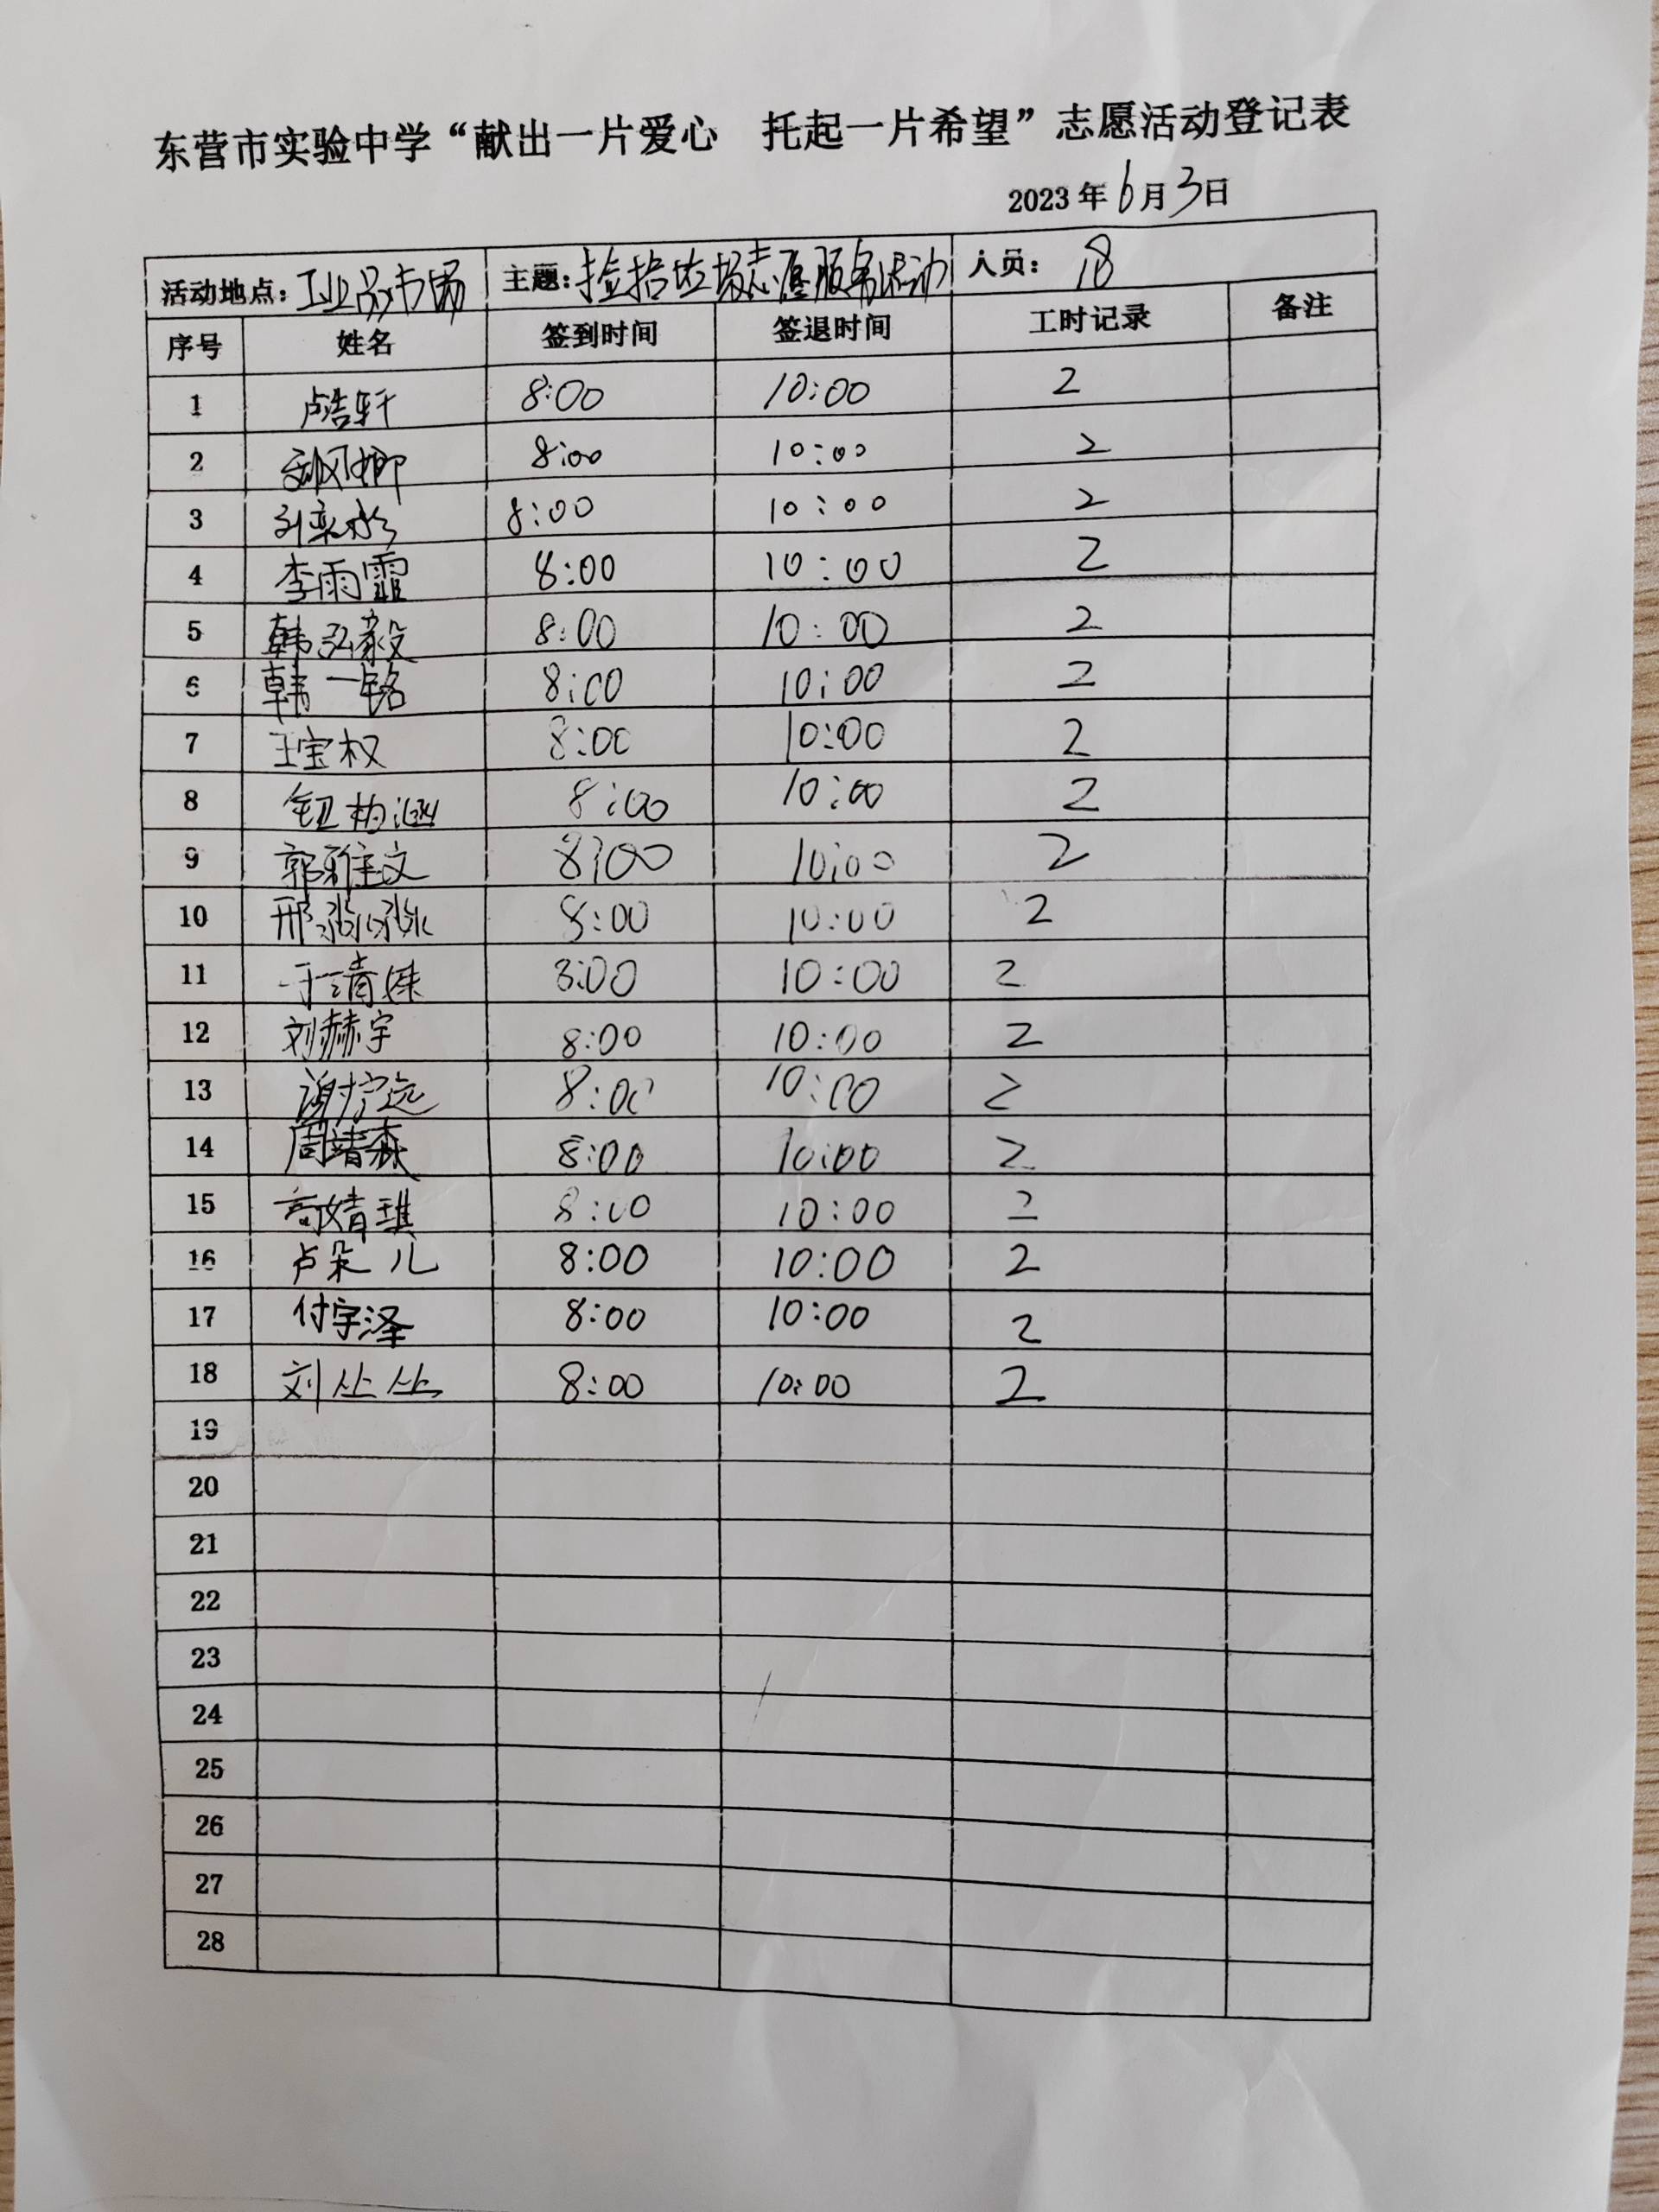 东营市实验中学“献出一片爱心 托起一片希望”志愿活动登记表
2023年6月3日
活动地点：工业品市场 主题：捡拾垃圾志愿服务活动 人员：18
序号 姓名 签到时间 签退时间 工时记录 备注
1 卢浩轩 8:00 10:00 2
2 8:00 10:00 2
3 8:00 10:00 2
4 李雨霏 8:00 10:00 2
5 韩弘毅 8:00 10:00 2
6 韩一铭 8:00 10:00 2
7 王宝权 8:00 10:00 2
8 8:00 10:00 2
9 郭雅文 8:00 10:00 2
10 邢淼淼 8:00 10:00 2
11 于清姝 8:00 10:00 2
12 刘赫宇 8:00 10:00 2
13 谢拧远 8:00 10:00 2
14 周靖森 8:00 10:00 2
15 高婧琪 8:00 10:00 2
16 卢朵儿 8:00 10:00 2
17 付宇泽 8:00 10:00 2
18 刘丛丛 8:00 10:00 2
19
20
21
22
23
24
25
26
27
28